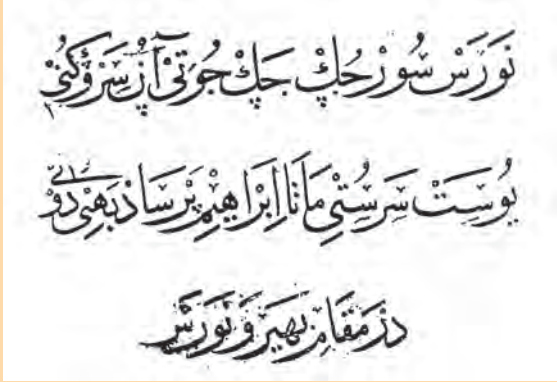 نَوَرَسْ سُورْ جُكْ جَكْ جُوتِيْ آنْرْ سَرْوَكُنِيْ
يُوسَتْ سَرَسُتِيْ مَاتَا اِبْرَاهِيْمْ پَرَسَادْ بَهَئِيْ دُونِيْ
دَرْ مَقَامْ بَهَيْرَوْ نَوَرَسْ